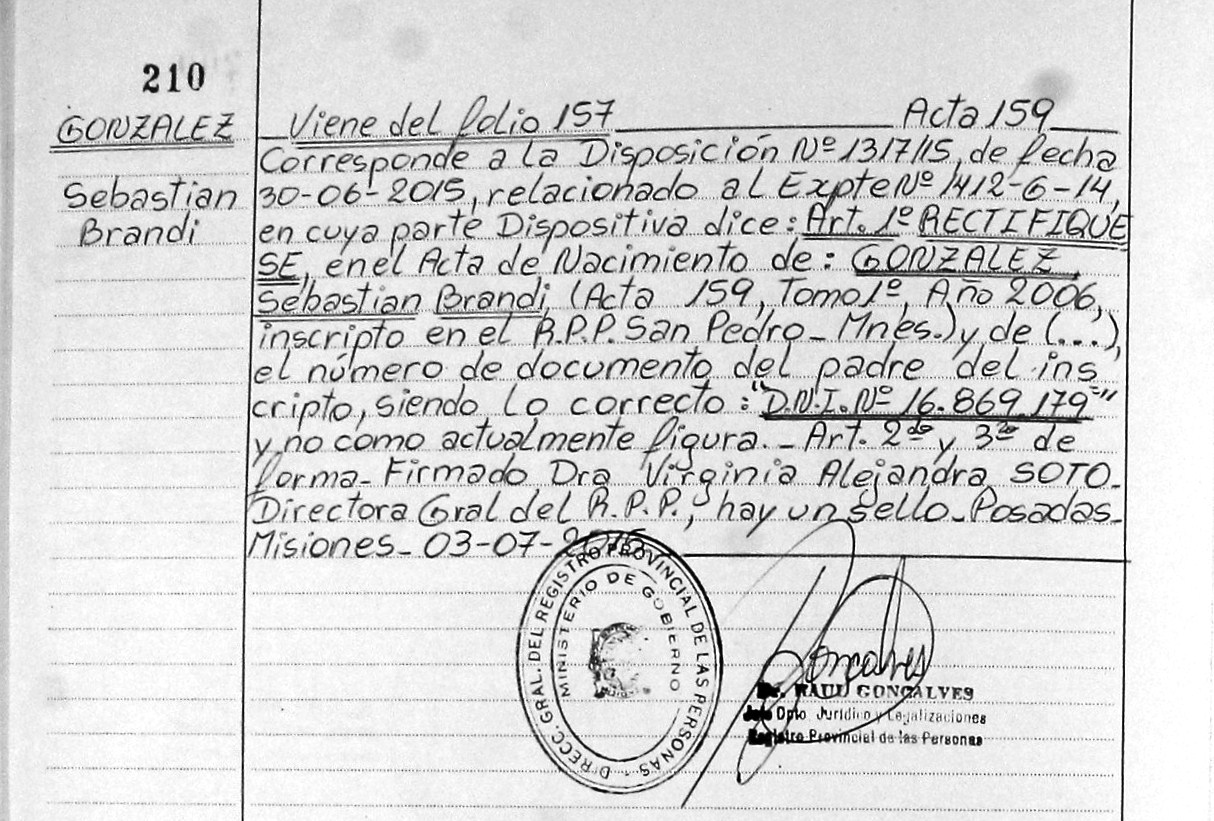 210
GONZALEZ
Sebastian
Brandi
Viene del folio 157 Acta 159
Corresponde a la Disposición Nº 1317/15, de fecha
30-06-2015, relacionado al Expte Nº 1412-G-14,
en cuya parte Dispositiva dice: Art. 1º RECTIFIQUE
SE, en el Acta de Nacimiento de: GONZALEZ,
Sebastian Brandi, (Acta 159, Tomo 1º, Año 2006,
inscripto en el R.P.P. San Pedro_ Mnes.) y de (...),
el número de documento del padre del ins
cripto, siendo lo correcto: "D.N.I. Nº 16.869.179="
y no como actualmente figura._ Art. 2do y 3ro de
forma_ Firmado Dra Virginia Alejandra SOTO_
Directora Gral del R.P.P., hay un sello_ Posadas_
Misiones_ 03-07-2015
DIRECC. GRAL. DEL REGISTRO PROVINCIAL DE LAS PERSONAS -
MINISTERIO DE GOBIERNO
Goncalves
Dr. RAUL GONCALVES
Jefe Dpto. Jurídico y Legalizaciones
Registro Provincial de las Personas